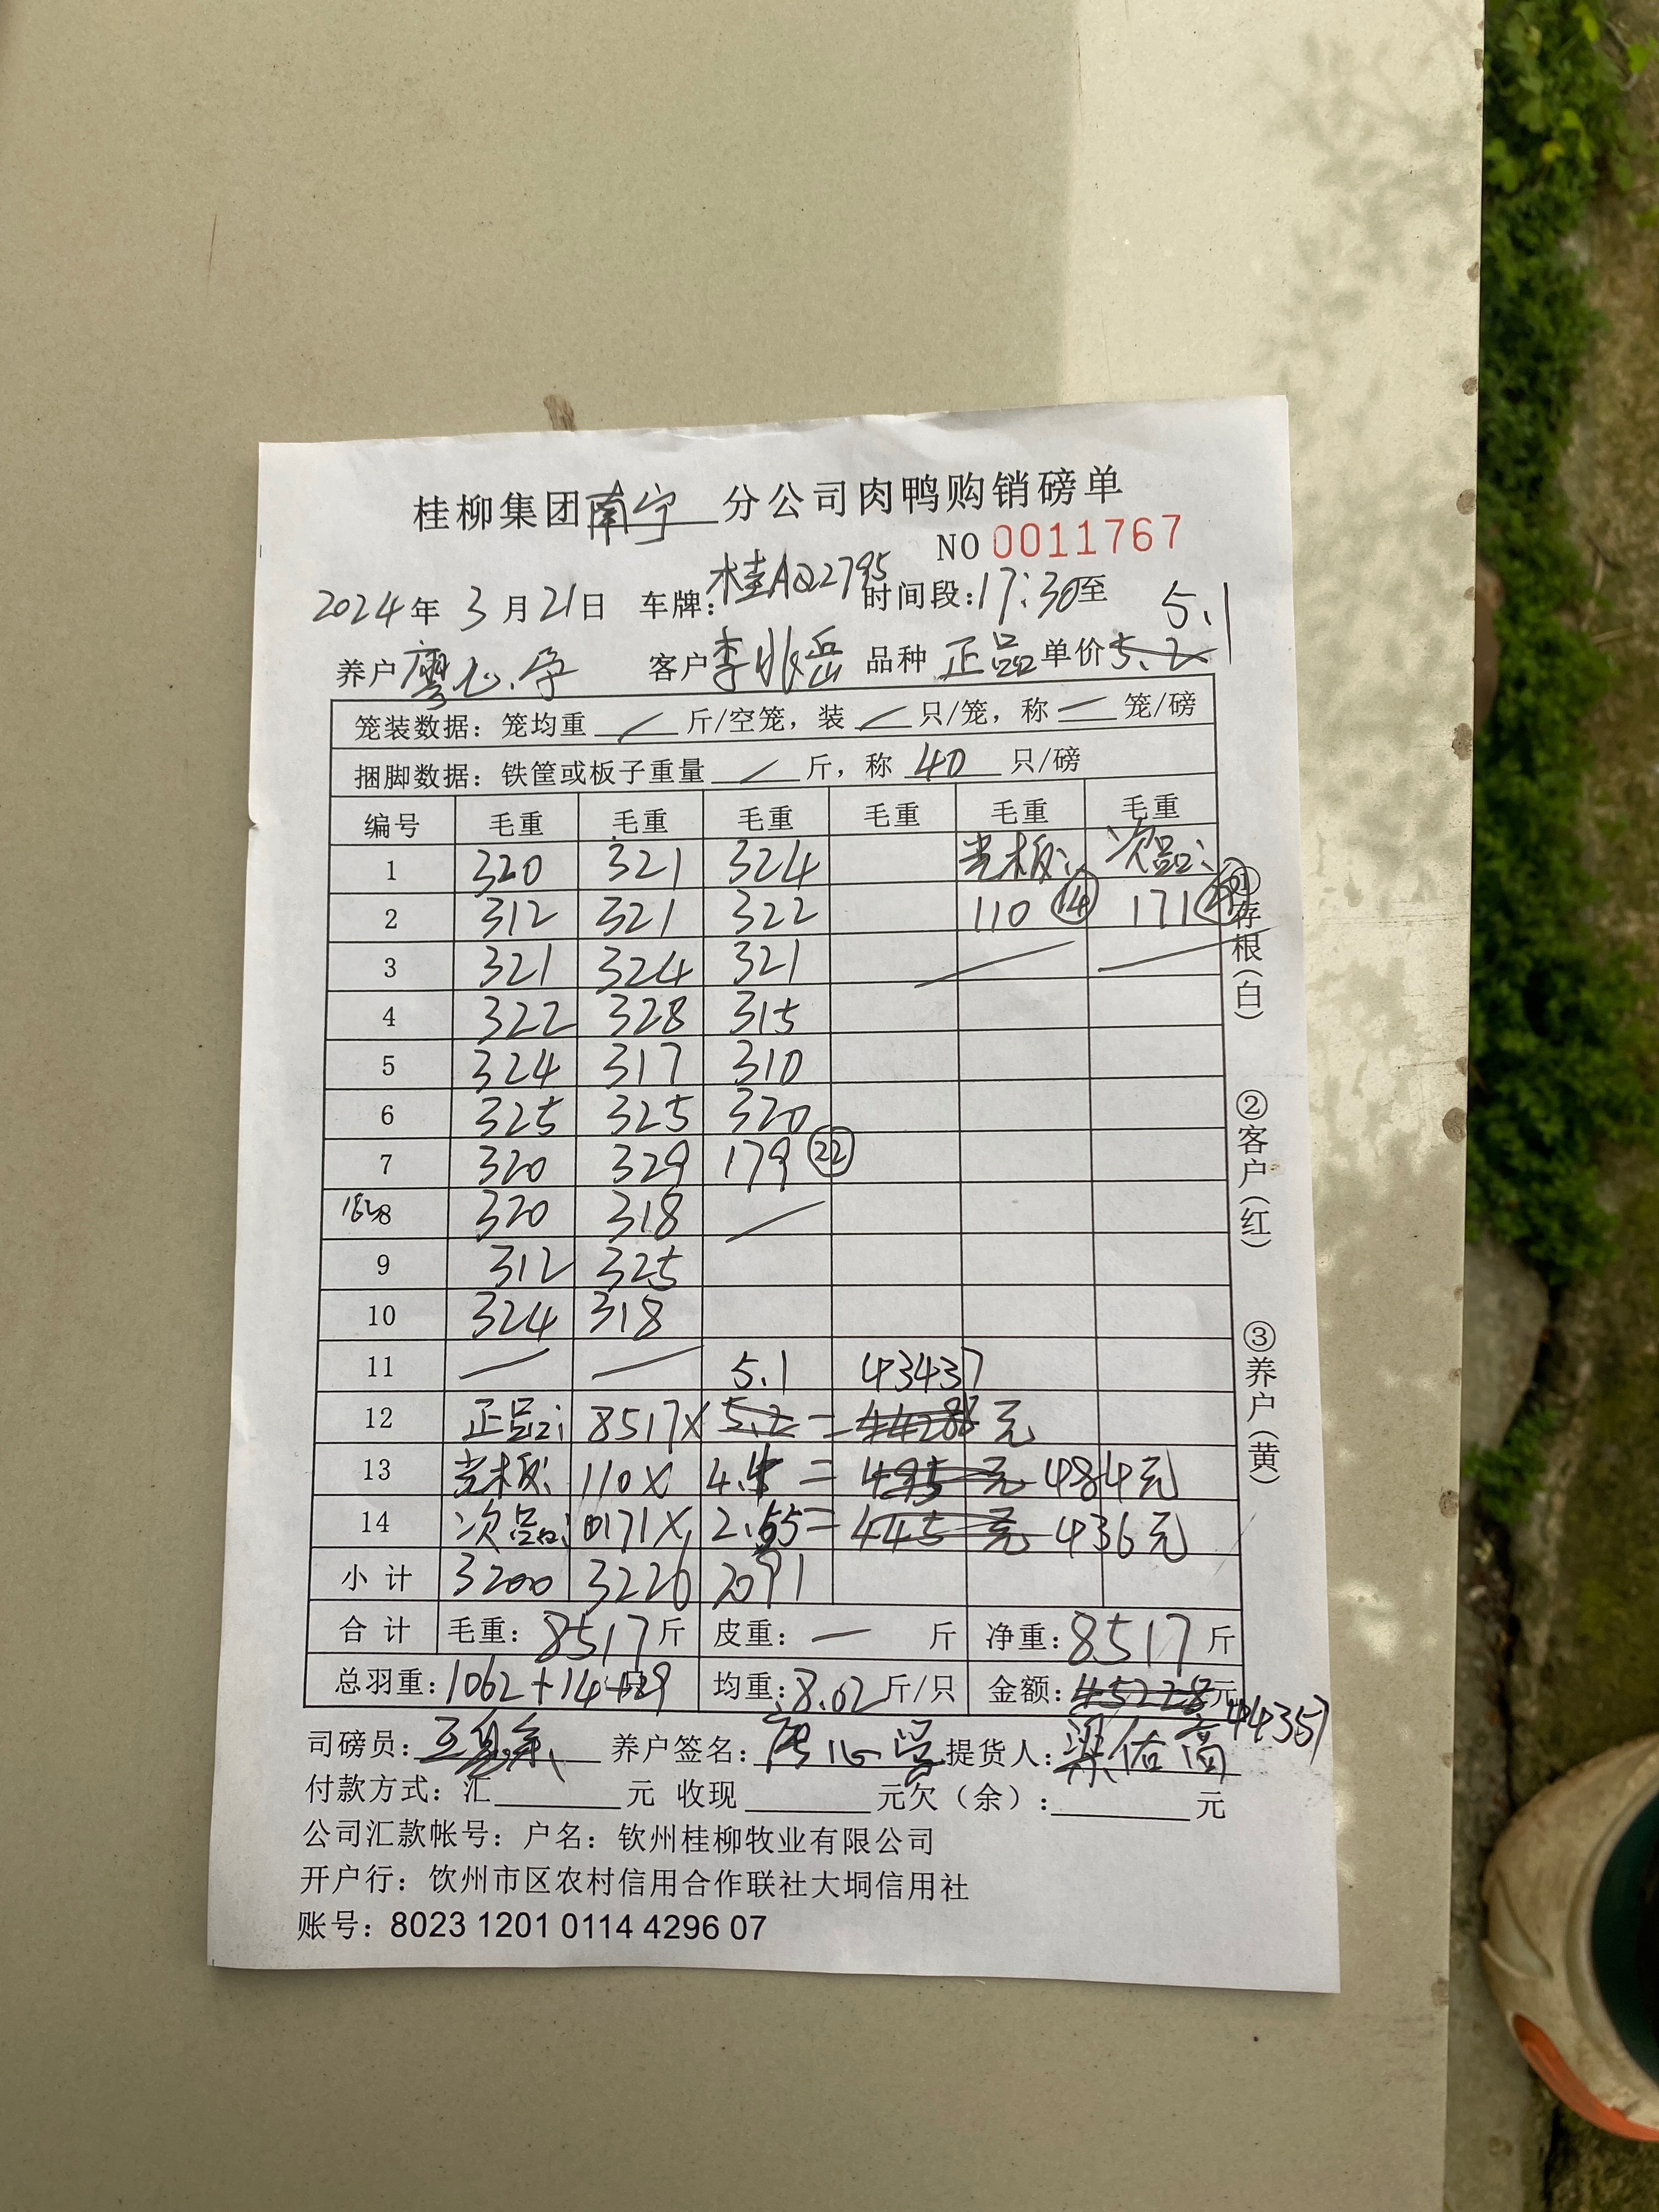 桂柳集团南宁分公司肉鸭购销磅单
NO 0011767
2024年3月21日 车牌:桂AQ2795 时间段:17:30至
5.1
养户 廖 客户 李兆岳 品种 正品 单价 5.2
笼装数据：笼均重 / 斤/空笼，装 / 只/笼，称 / 笼/磅
捆脚数据：铁筐或板子重量 / 斤，称 40 只/磅
编号 毛重 毛重 毛重 毛重 毛重 毛重
1 320 321 324 光板: 次品:
2 312 321 322 110 ⑭ 171
3 321 324 321
4 322 328 315
5 324 317 310
6 325 325 320
7 320 329 179 ㉒
8 320 318
9 312 325
10 324 318
11 5.1 43437
12 正品: 8517× 5.2 = 44288元
13 光板: 110× 4.4 = 495元 484元
14 次品: 171× 2.55= 445元 436元
小计 3200 3226 2091
合计 毛重：8517斤 皮重：— 斤 净重：8517斤
总羽重：1062+14+29 只 均重：8.02斤/只 金额：45228元
44357
司磅员： 养户签名： 提货人：梁佑高
付款方式：汇 元 收现 元欠（余）： 元
公司汇款帐号：户名：钦州桂柳牧业有限公司
开户行：饮州市区农村信用合作联社大垌信用社
账号：8023 1201 0114 4296 07
①存根（白）
②客户（红）
③养户（黄）